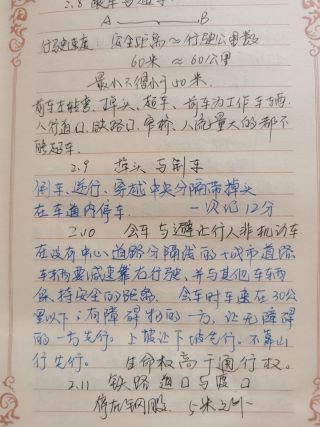 2.8 跟车与
A → B
行驶速度 安全距离 ≈ 行驶公里数
60米 ≈ 60/公里
最小不得小于50米.
前车左转弯、掉头、超车、前车为工作车辆.
人行道口、铁路口、窄桥、人流量大的都不
能超车.
2.9 掉头与刹车
倒车、逆行、穿越中央分隔带掉头
在车道内停车. 一次记12分
2.10 会车与避让行人非机动车
在没有中心道路分隔线的城市道路
车辆要减速靠右行驶,并与其他车辆
保持安全的距离. 会车时车速在30公
里以下;有障碍物的一方,让无障碍
的一方先行. 上坡让下坡先行. 不靠山
行先行. 生命权高于通行权.
2.11 铁路道口与渡口
停在 5米之外